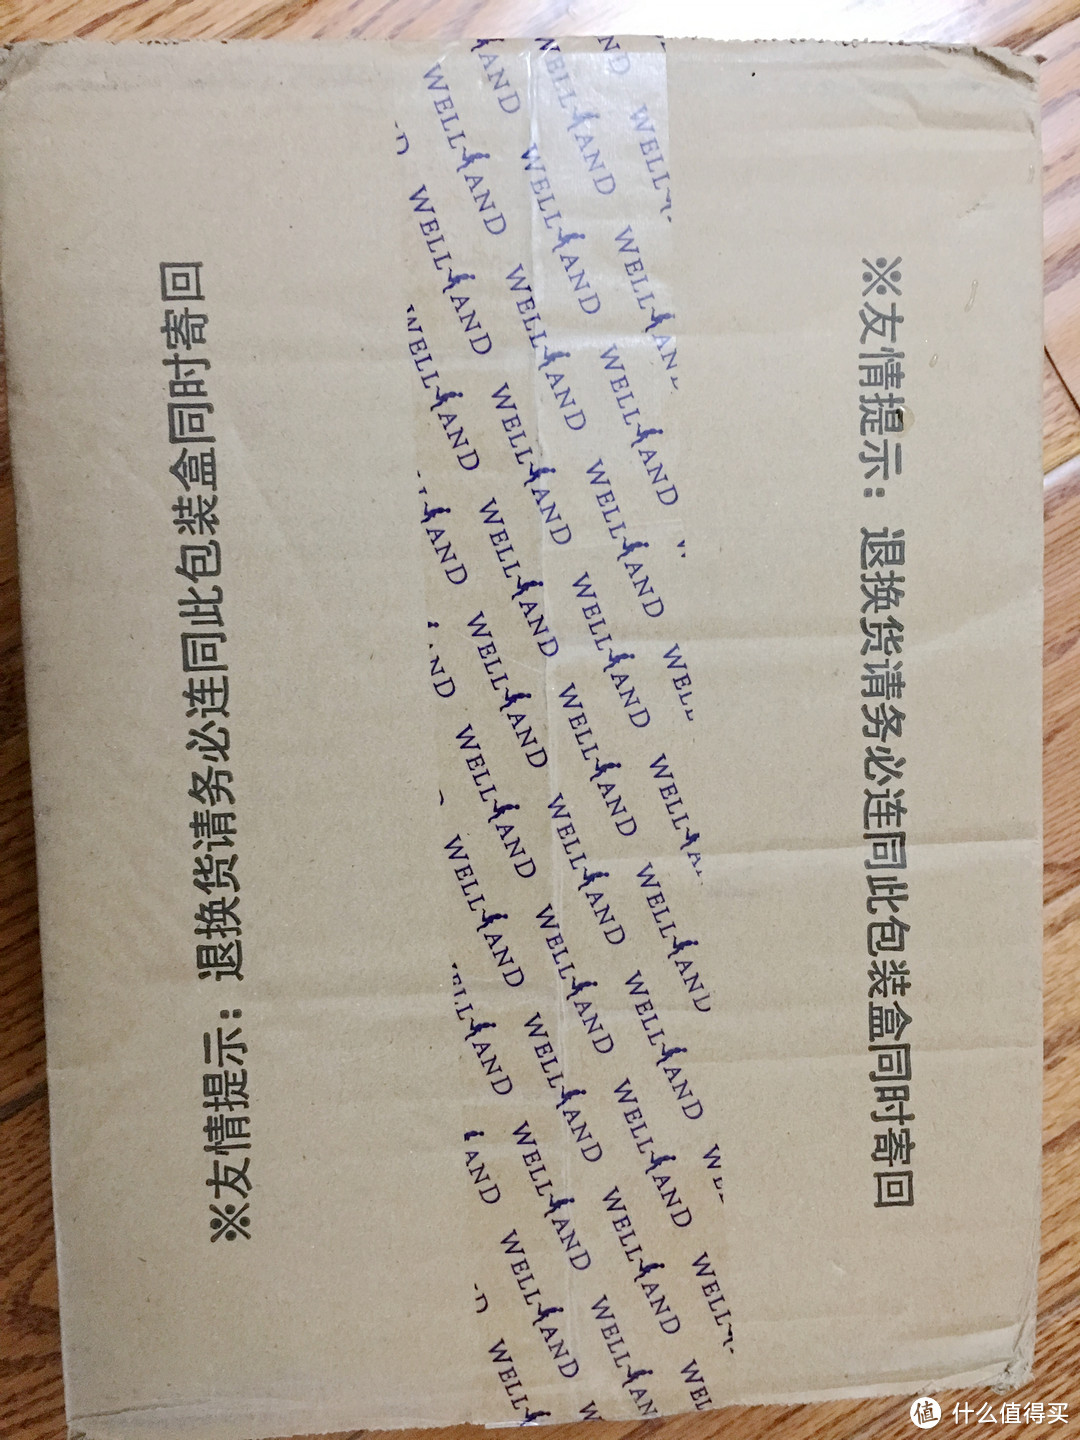 ※友情提示：退换货请务必连同此包装盒同时寄回
WELL HAND
※友情提示：退换货请务必连同此包装盒同时寄回
值 什么值得买